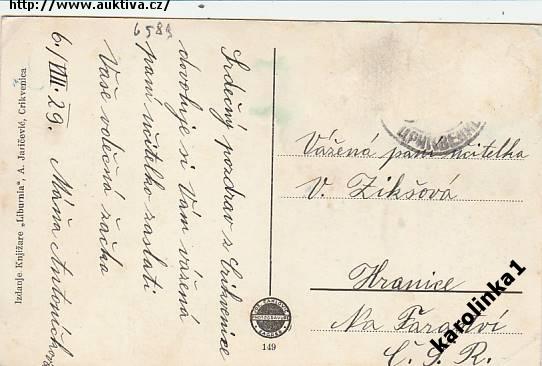 http://www.auktiva.cz/
6584
Srdečný pozdrav z Crikvenice
dovoluje si Vám vážená
paní učitelko zaslati
Vaše vděčná žačka
6./VIII. 29. Máňa Antoníčková
Izdanje Knjižare „Liburnia", A. Jaričević, Crikvenica
149
Vážená paní učitelka
V. Zikšová
Hranice
Na Farářství
Č. S. R.
karolinka1